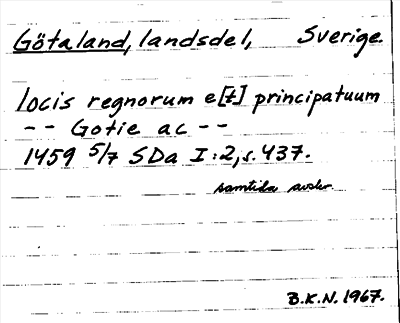 Götaland, landsdel, Sverige.
locis regnorum e[t] principatuum
-- Gotie ac --
1459 5/7 SDa I:2, s. 437.
samtida avskr.
B.K.N. 1967.